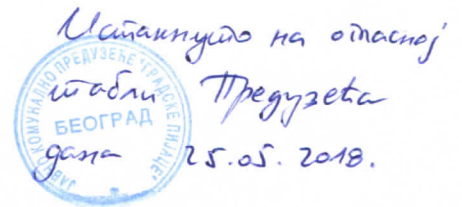 Истакнуто на огласној
табли Предузећа
дана 25.05.2018.
ЈАВНО КОМУНАЛНО ПРЕДУЗЕЋЕ "ГРАДСКЕ ПИЈАЦЕ"
БЕОГРАД